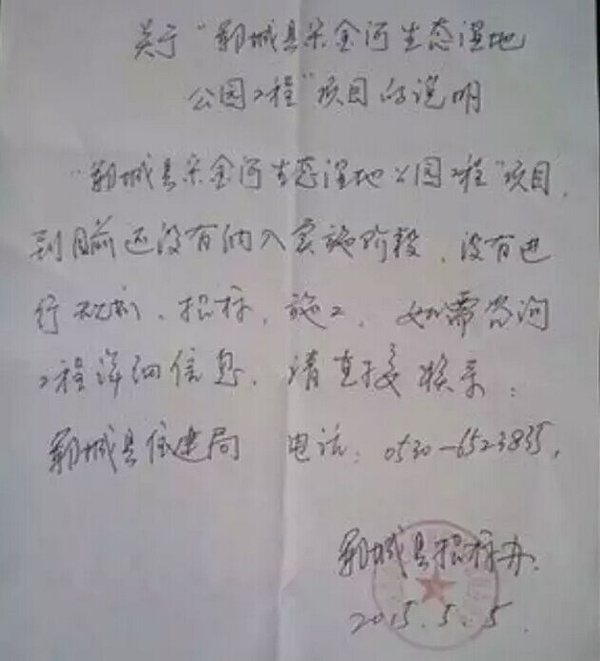 关于“郓城县宋金河生态湿地
公园工程”项目的说明
“郓城县宋金河生态湿地公园工程”项目,
到目前还没有纳入实施阶段,没有进
行规划、招标、施工,如需咨询
工程详细信息,请直接联系:
郓城县住建局 电话:0530-6523835,
郓城县招标办.
2015.5.5.